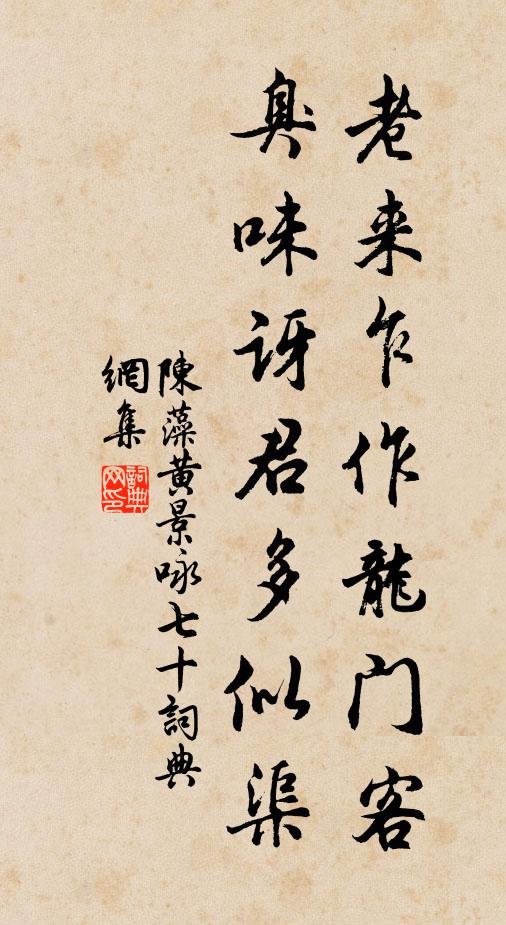 老来乍作龍门客
臭味訝君多似渠
陳藻黄景咏七十詞典
網集
詞典网印